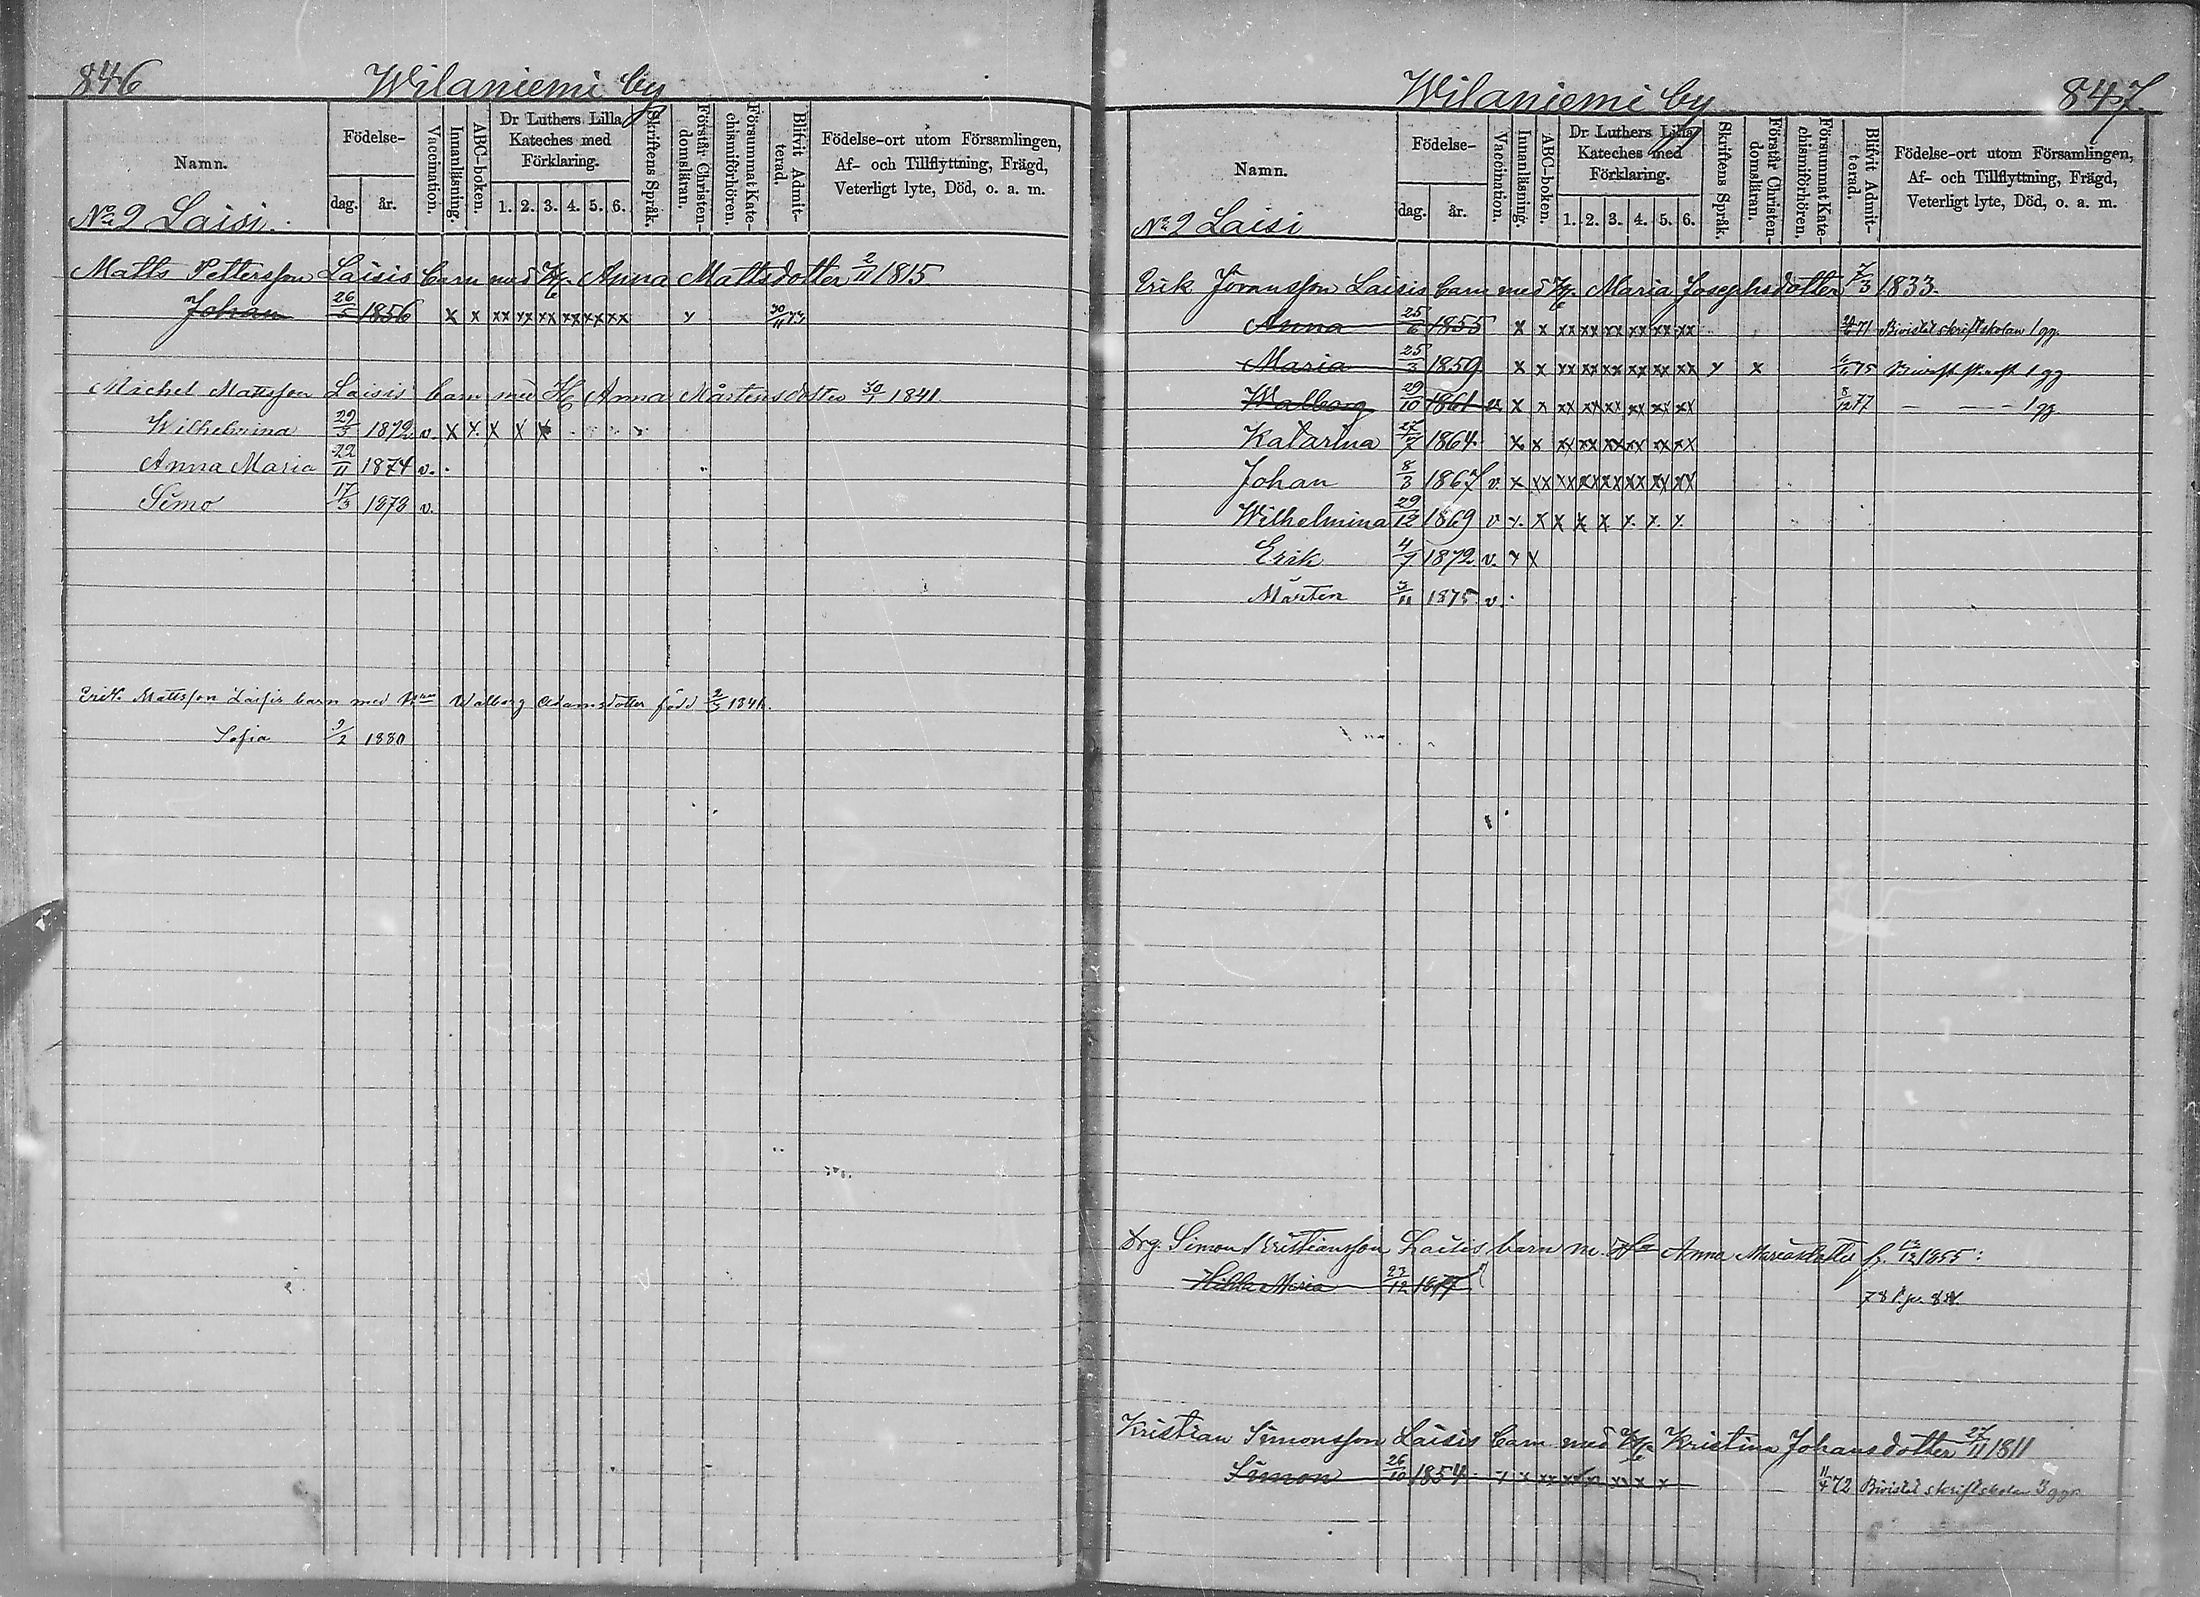 846 Wilaniemi by
Namn. Födelse- dag. år. Vaccination. Innanläsning. ABC-boken. Dr Luthers Lilla Kateches med Förklaring. 1. 2. 3. 4. 5. 6. Skriftens Språk. Förstår Christendomsläran. Försummat Katechismiförhören. Blifvit Admitterad. Födelse-ort utom Församlingen, Af- och Tillflyttning, Frägd, Veterligt lyte, Död, o. a. m.
No 2 Laisi.
Matts Pettersson Laisis barn med H. Anna Mattsdotter 2/11 1815.
Johan 26/5 1856 x x xx xx xx xx xx xx x 30/11 73
Michel Mattsson Laisis barn med H. Anna Mårtensdotter 30/1 1841.
Wilhelmina 29/3 1872 v. x x x x x
Anna Maria 22/11 1874 v.
Simo 17/3 1878 v.
Erik Mattsson Laisis barn med Walborg Adamsdotter född 2/3 1841.
Sofia 9/2 1880
Wilaniemi by 847.
Namn. Födelse- dag. år. Vaccination. Innanläsning. ABC-boken. Dr Luthers Lilla Kateches med Förklaring. 1. 2. 3. 4. 5. 6. Skriftens Språk. Förstår Christendomsläran. Försummat Katechismiförhören. Blifvit Admitterad. Födelse-ort utom Församlingen, Af- och Tillflyttning, Frägd, Veterligt lyte, Död, o. a. m.
No 2 Laisi
Erik Göransson Laisis barn med H. Maria Josephsdotter 7/3 1833.
Anna 25/6 1855 x x xx xx xx xx xx xx 71 Bivistat skriftskolan 1 gg.
Maria 25/3 1859 x x xx xx xx xx xx xx x x 75 1 gg
Walborg 29/10 1861 v. x x xx xx xx xx xx xx 8/12 77 — — 1 gg
Katarina 27/7 1864 x x xx xx xx xx xx xx
Johan 8/3 1867 v. x xx xx xx xx xx xx xx
Wilhelmina 29/12 1869 v x. x x x x x. x. x.
Erik 4/7 1872 v. x x
Mårten 3/11 1875 v.
Drg. Simon Kristiansson Laisis barn m. Anna f. /12 1855:
Maria 23/12 1877
78
Kristian Simonsson Laisis barn med H. Kristina Johansdotter 27/11 1811
Simon 26/10 1854 x x xx xx xx xx x x 11/4 72 Bivistat skriftskolan 3 ggr.